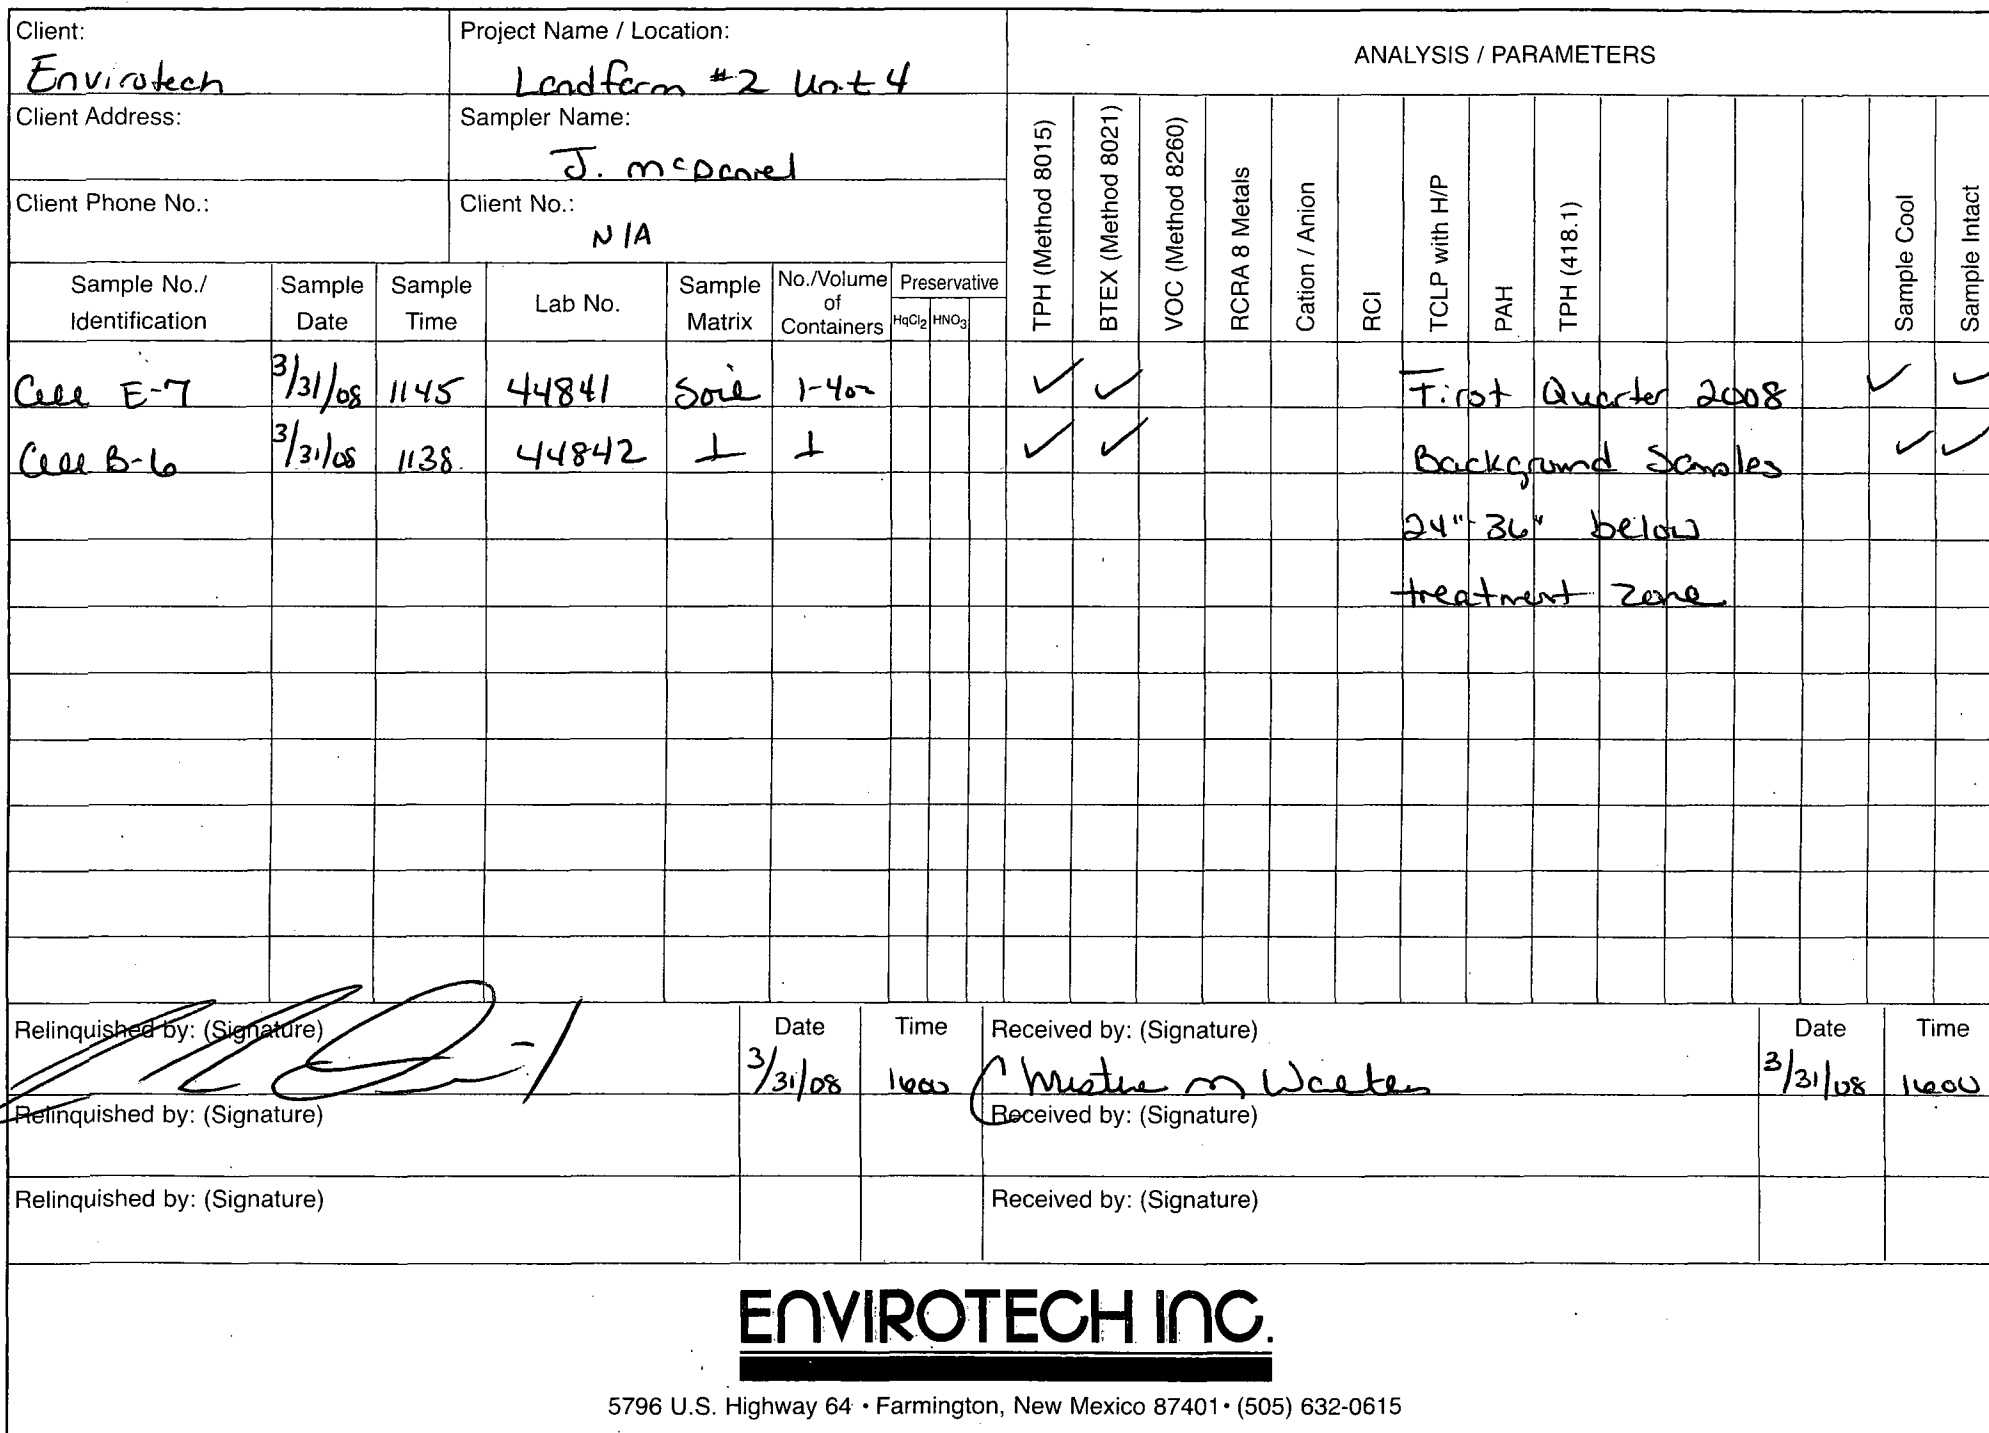 Client:
Envirotech
Project Name / Location:
Landfarm #2 Unit 4
ANALYSIS / PARAMETERS
Client Address:
Sampler Name:
J. McDaniel
Client Phone No.:
Client No.:
N/A
Sample No./ Identification
Sample Date
Sample Time
Lab No.
Sample Matrix
No./Volume of Containers
Preservative
HgCl2 HNO3
TPH (Method 8015)
BTEX (Method 8021)
VOC (Method 8260)
RCRA 8 Metals
Cation / Anion
RCI
TCLP with H/P
PAH
TPH (418.1)
Sample Cool
Sample Intact
Cell E-7 3/31/08 1145 44841 Soil 1-4oz ✓ ✓ First Quarter 2008 ✓ ✓
Cell B-6 3/31/08 1138 44842 ⊥ ⊥ ✓ ✓ Background Samples ✓ ✓
24"-36" below
treatment zone
Relinquished by: (Signature) Date Time Received by: (Signature) Date Time
3/31/08 1600 Christine M Walters 3/31/08 1600
Relinquished by: (Signature) Received by: (Signature)
Relinquished by: (Signature) Received by: (Signature)
ENVIROTECH INC.
5796 U.S. Highway 64 • Farmington, New Mexico 87401 • (505) 632-0615